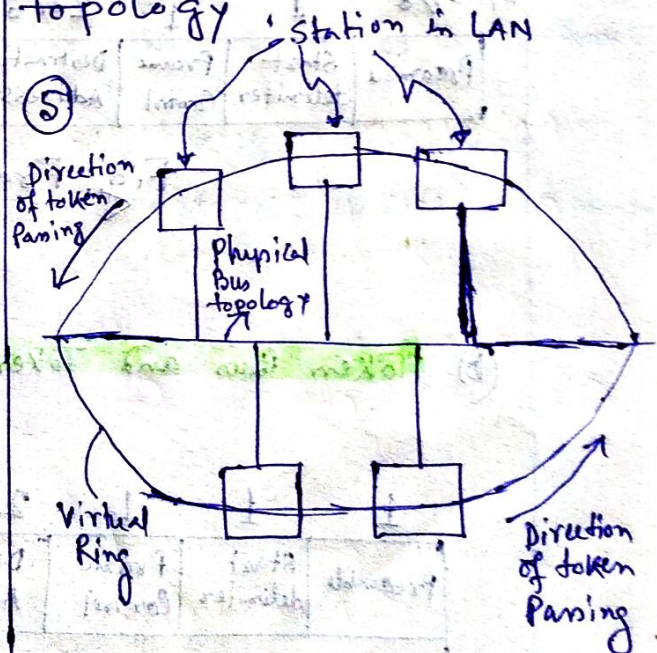 topology
Station in LAN
5
Direction
of token
Passing
Physical
Bus
topology
Virtual
Ring
Direction
of token
Passing